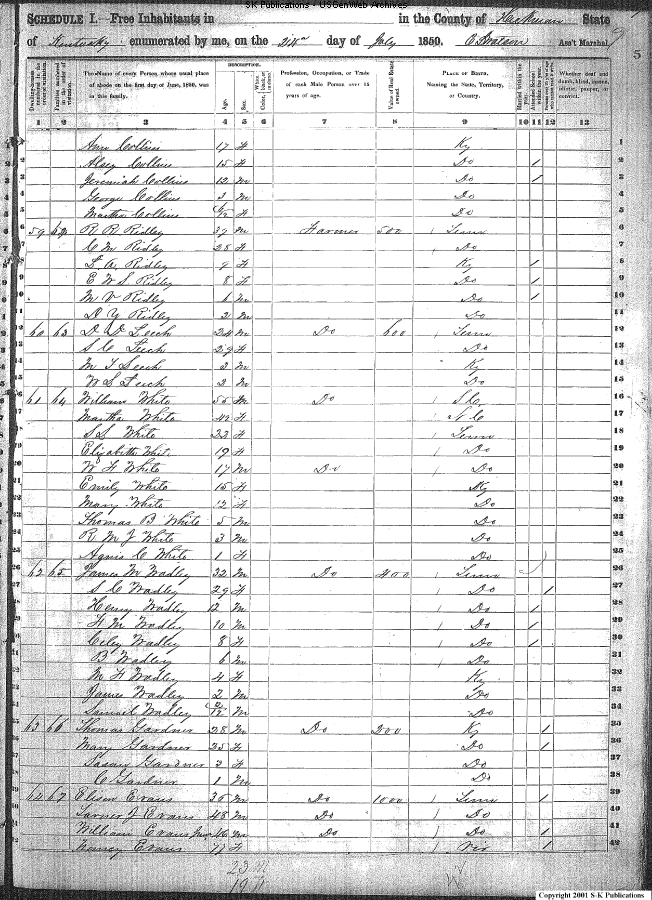 SK Publications - USGenWeb Archives
SCHEDULE I.—Free Inhabitants in in the County of Hickman State
of Kentucky enumerated by me, on the 24th day of July 1850. Ass't Marshal.
5
DESCRIPTION.
The Name of every Person whose usual place of abode on the first day of June, 1850, was in this family.
Age.
Sex.
Profession, Occupation, or Trade of each Male Person over 15 years of age.
Value of Real Estate owned.
PLACE OF BIRTH, Naming the State, Territory, or Country.
Whether deaf and dumb, blind, insane, idiotic, pauper, or convict.
1 2 3 4 5 6 7 8 9 10 11 12 13
Ann Collins 17 F Ky 1
Alsey Collins 15 F Do 1 2
Jeremiah Collins 12 M Do 1 3
George Collins 3 M Do 4
Martha Collins 6/12 F Do 5
59 62 R R Ridley 37 M Farmer 500 Tenn 6
C M Ridley 28 F Do 7
L A Ridley 9 F Ky 1 8
E W S Ridley 8 F Do 1 9
M V Ridley 6 M Do 1 10
D Y Ridley 2 M Do 11
60 63 D D Leech 24 M Do 600 Tenn 12
S C Leech 29 F Do 13
M T Leech 3 M Ky 14
W S Leech 2 M Do 15
61 64 William White 55 M Do S C 16
Martha White 42 F N C 17
S S White 23 F Tenn 18
Elizabeth White 19 F Do 19
W H White 17 M Do Do 20
Emily White 15 F Ky 21
Mary White 12 F Do 22
Thomas B White 5 M Do 23
R M J White 3 M Do 24
Agnis C White 1 F Do 25
62 65 James M Wadley 32 M Do 400 Tenn 26
S C Wadley 29 F Do 1 27
Henry Wadley 12 M Do 1 28
H M Wadley 10 M Do 1 29
Celey Wadley 8 F Do 1 30
B Wadley 6 M Do 31
M F Wadley 4 F Ky 32
James Wadley 2 M Do 33
Samuel Wadley M Do 34
63 66 Thomas Gardner 28 M Do 200 Ky 1 35
Mary Gardner 25 F Do 1 36
Susan Gardner 3 F Do 37
C Gardner 1 M Do 38
67 Evans M Do 1000 Tenn 1 39
J Evans 48 M Do Do 40
William Evans 46 M Do Do 1 41
Nancy Evans 71 F Vir 1 42
23 M
19 F
Copyright 2001 S-K Publications